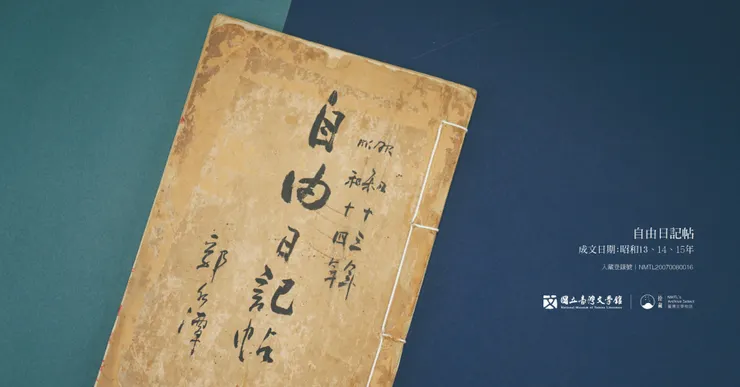 昭和十三年
昭和十四年
自由日記帖
郭水潭
自由日記帖
成文日期:昭和13、14、15年
入藏登錄號|NMTL20070060016
國立臺灣文學館
National Museum of Taiwan Literature
拾藏
NMTL's
Archive Select
臺灣文學物語